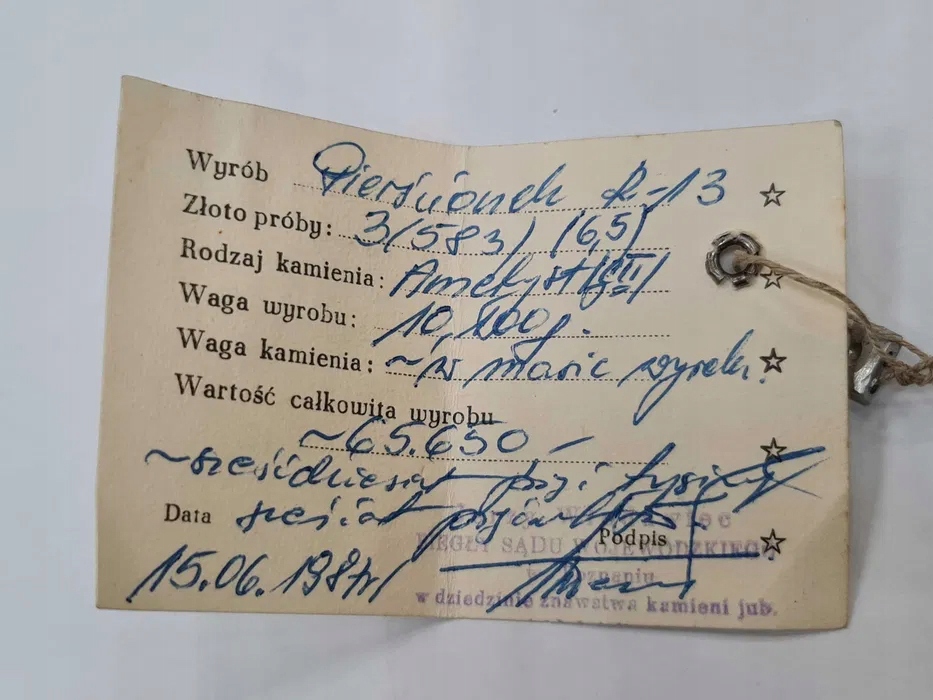 Wyrób Pierścionek R-13
Złoto próby: 3(583) (6,5)
Rodzaj kamienia: Ametyst
Waga wyrobu: 10,200g.
Waga kamienia: ~ w masie wyrobu.
Wartość całkowita wyrobu
~65.650,-
~sześćdziesiąt pięć tysięcy
Data sześćset pięćdziesiąt Podpis
BIEGŁY SĄDU WOJEWÓDZKIEGO
w Poznaniu
15.06.1987r
w dziedzinie znawstwa kamieni jub.